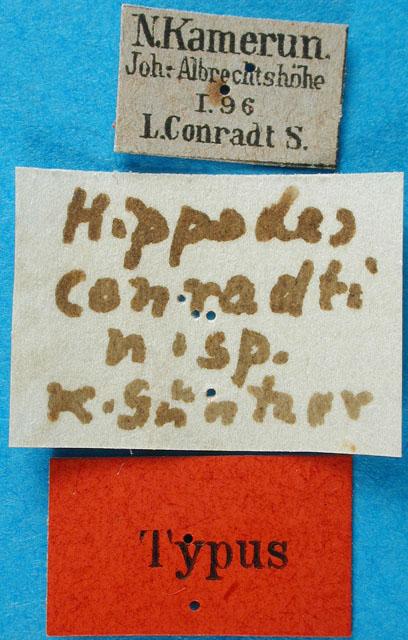 N.Kamerun.
Joh:-Albrechtshöhe
I. 96
L.Conradt S.
Hippodes
conradti
n. sp.
K. Günther
Typus